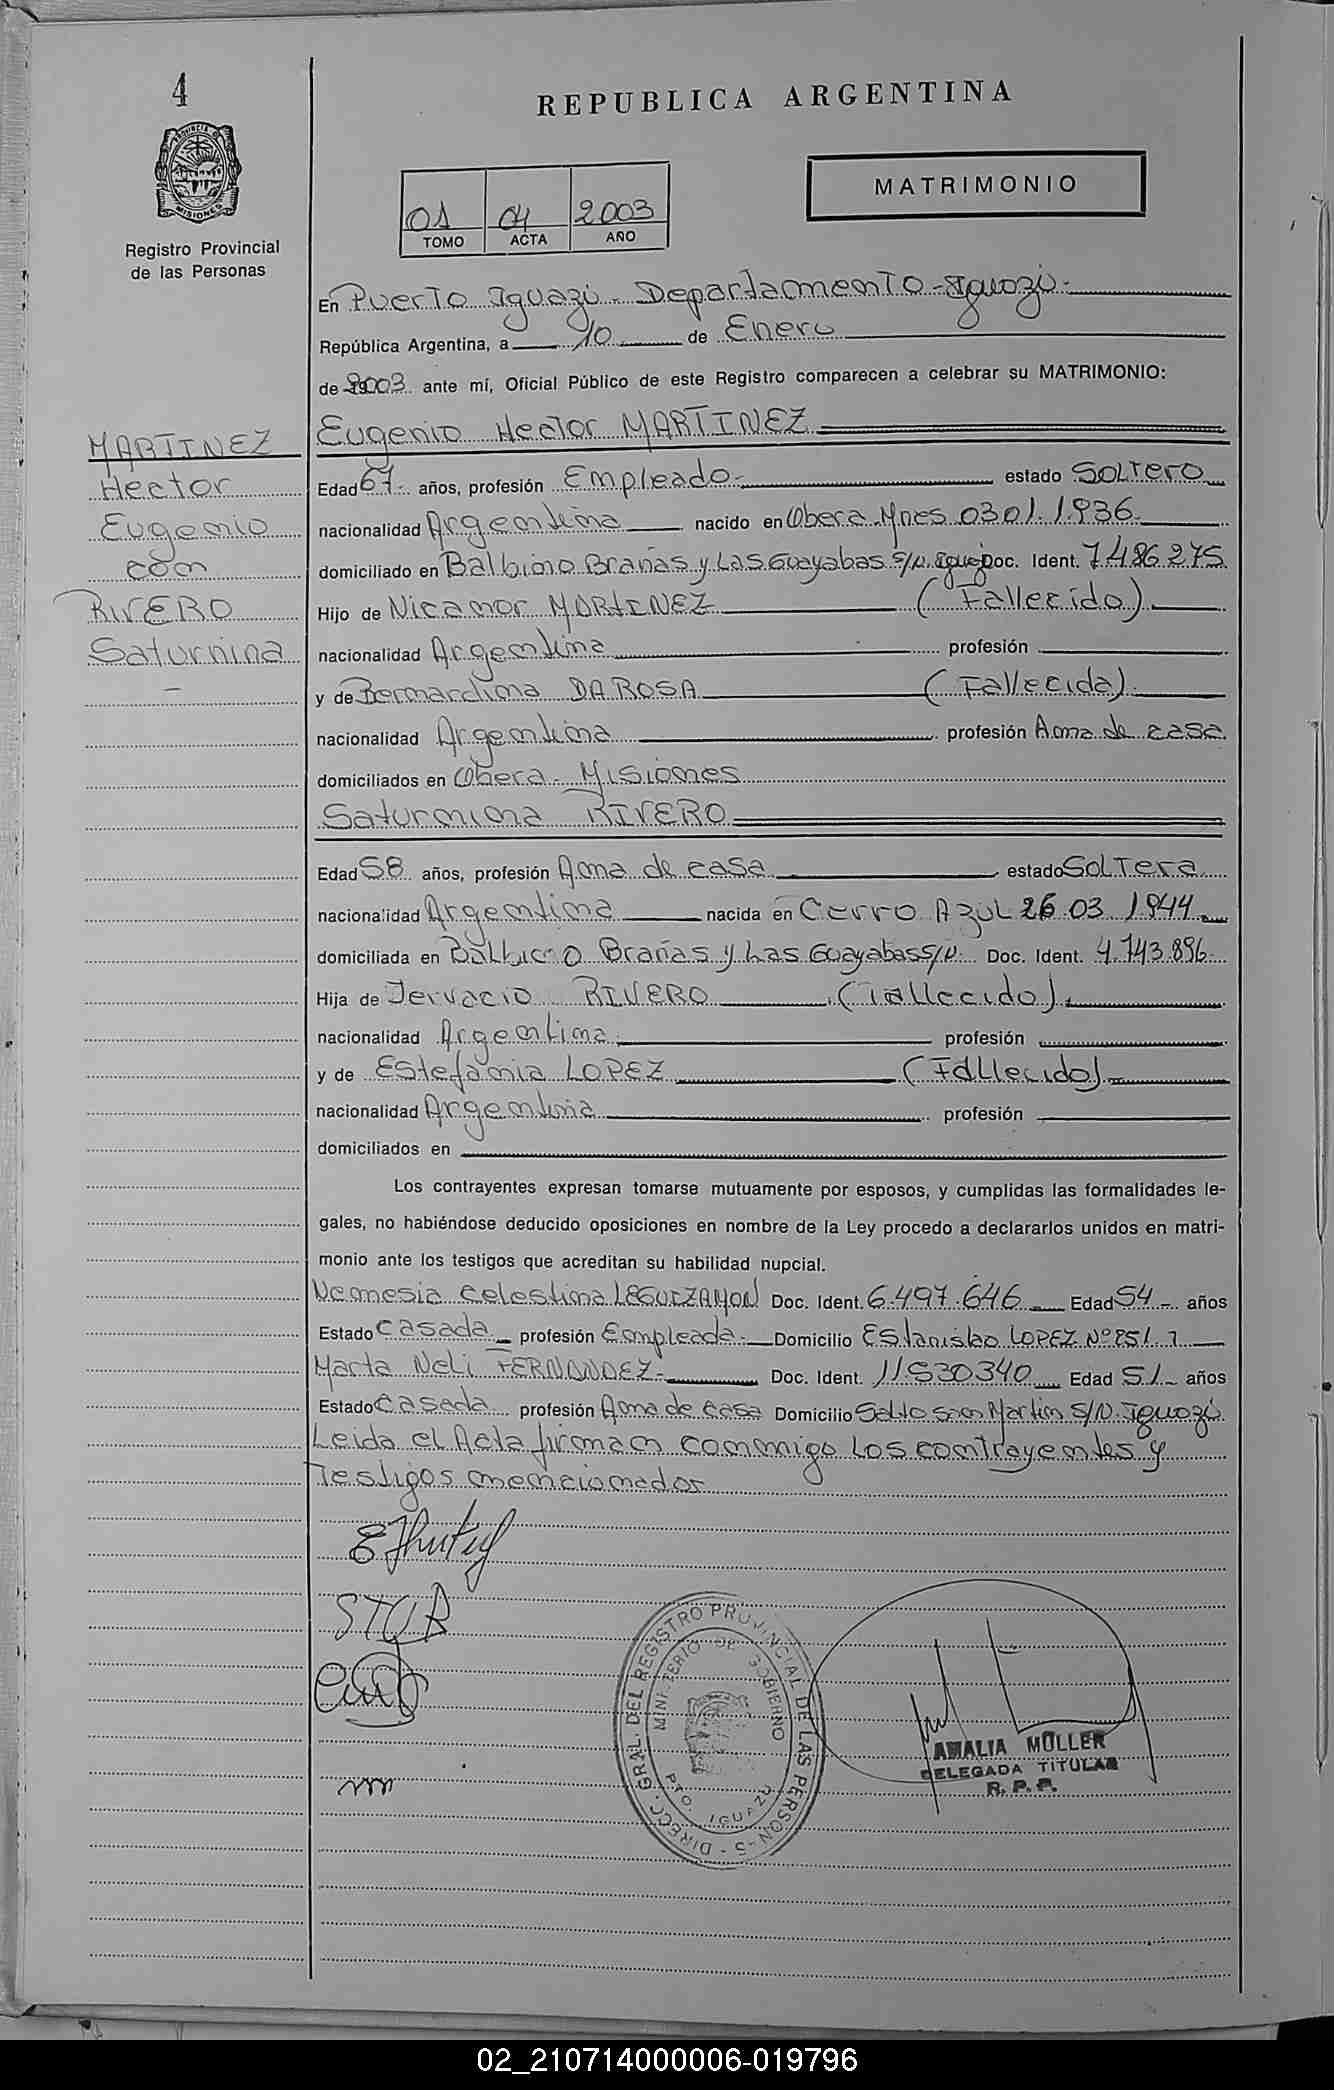 4
REPUBLICA ARGENTINA
PROVINCIA D MISIONES
MATRIMONIO
01 04 2003
TOMO ACTA AÑO
Registro Provincial
de las Personas
En Puerto Iguazú - Departamento - Iguazú -
República Argentina, a 10 de Enero
de 2003 ante mí, Oficial Público de este Registro comparecen a celebrar su MATRIMONIO:
Eugenio Hector MARTINEZ
MARTINEZ
Hector
Eugenio
con
RIVERO
Saturnina
Edad 67 - años, profesión Empleado - estado SOLTERO
nacionalidad Argentina nacido en Obera Mnes 03 01 1936
domiciliado en Balbino Brañas y Las Guayabas S/N Doc. Ident. 7.486.275
Hijo de Nicanor MARTINEZ (Fallecido)
nacionalidad Argentina profesión
y de Bernardina DA ROSA (Fallecida)
nacionalidad Argentina profesión Ama de casa
domiciliados en Obera - Misiones
Saturnina RIVERO
Edad 58 años, profesión Ama de casa estado SOLTERA
nacionalidad Argentina nacida en Cerro Azul 26 03 1944
domiciliada en Balbino Brañas y Las Guayabas S/N. Doc. Ident. 4.743.896
Hija de Jervacio RIVERO (Fallecido)
nacionalidad Argentina profesión
y de Estefania LOPEZ (Fallecido)
nacionalidad Argentina profesión
domiciliados en
Los contrayentes expresan tomarse mutuamente por esposos, y cumplidas las formalidades le-
gales, no habiéndose deducido oposiciones en nombre de la Ley procedo a declararlos unidos en matri-
monio ante los testigos que acreditan su habilidad nupcial.
Nemesia Celestina LEGUIZAMON Doc. Ident. 6.497.646 Edad 54 - años
Estado Casada profesión Empleada - Domicilio Estanislao LOPEZ Nº 851
Marta Neli FERNANDEZ - Doc. Ident. 11.530340 Edad 51 años
Estado Casada profesión Ama de casa Domicilio Salto San Martin S/N. Iguazú
Leida el Acta firman conmigo los contrayentes y
Testigos mencionados
STQR
DIRECC. GRAL. DEL REGISTRO PROVINCIAL DE LAS PERSON-S
MINISTERIO DE GOBIERNO
PTO. IGUAZU
AMALIA MULLER
DELEGADA TITULAR
R. P. P.
02_210714000006-019796